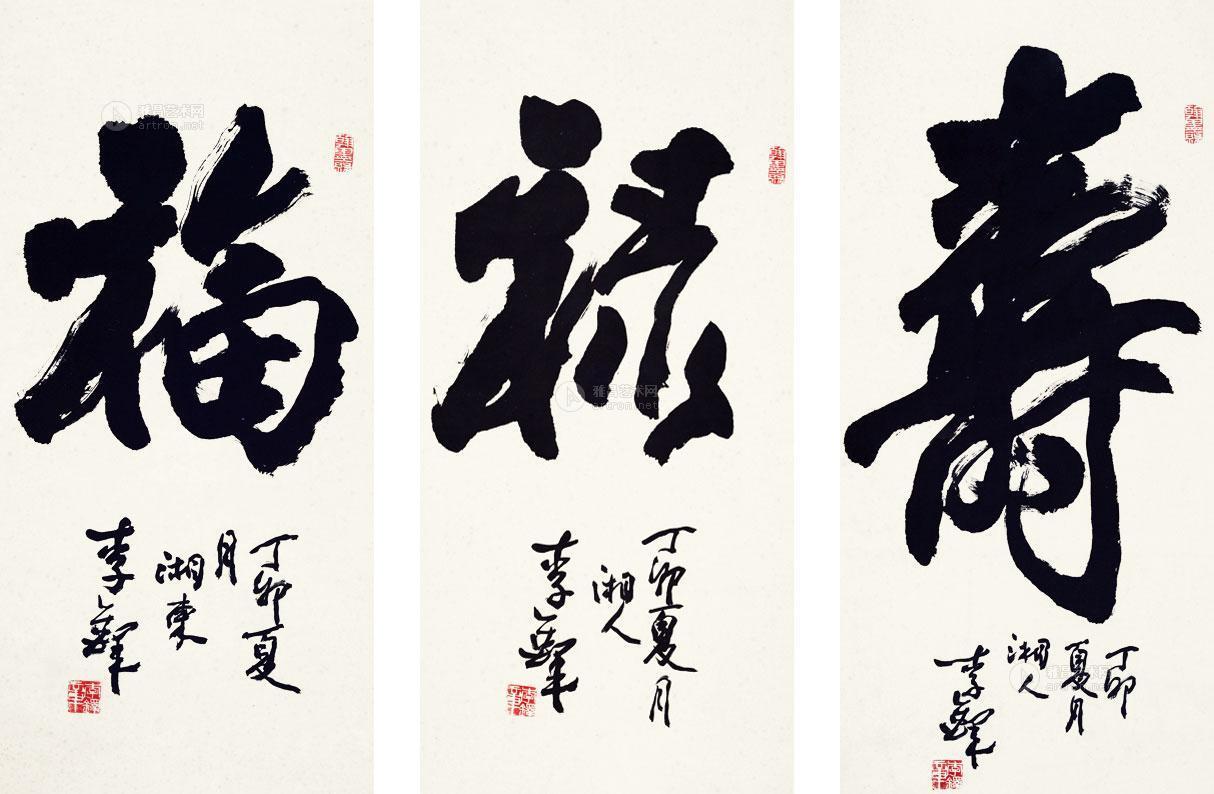 福
丁卯夏
月
湘東
李鐸
雅昌艺术网
artron.net
禄
丁卯夏月
湘人
李鐸
雅昌艺术网
artron.net
壽
丁卯
夏月
湘人
李鐸